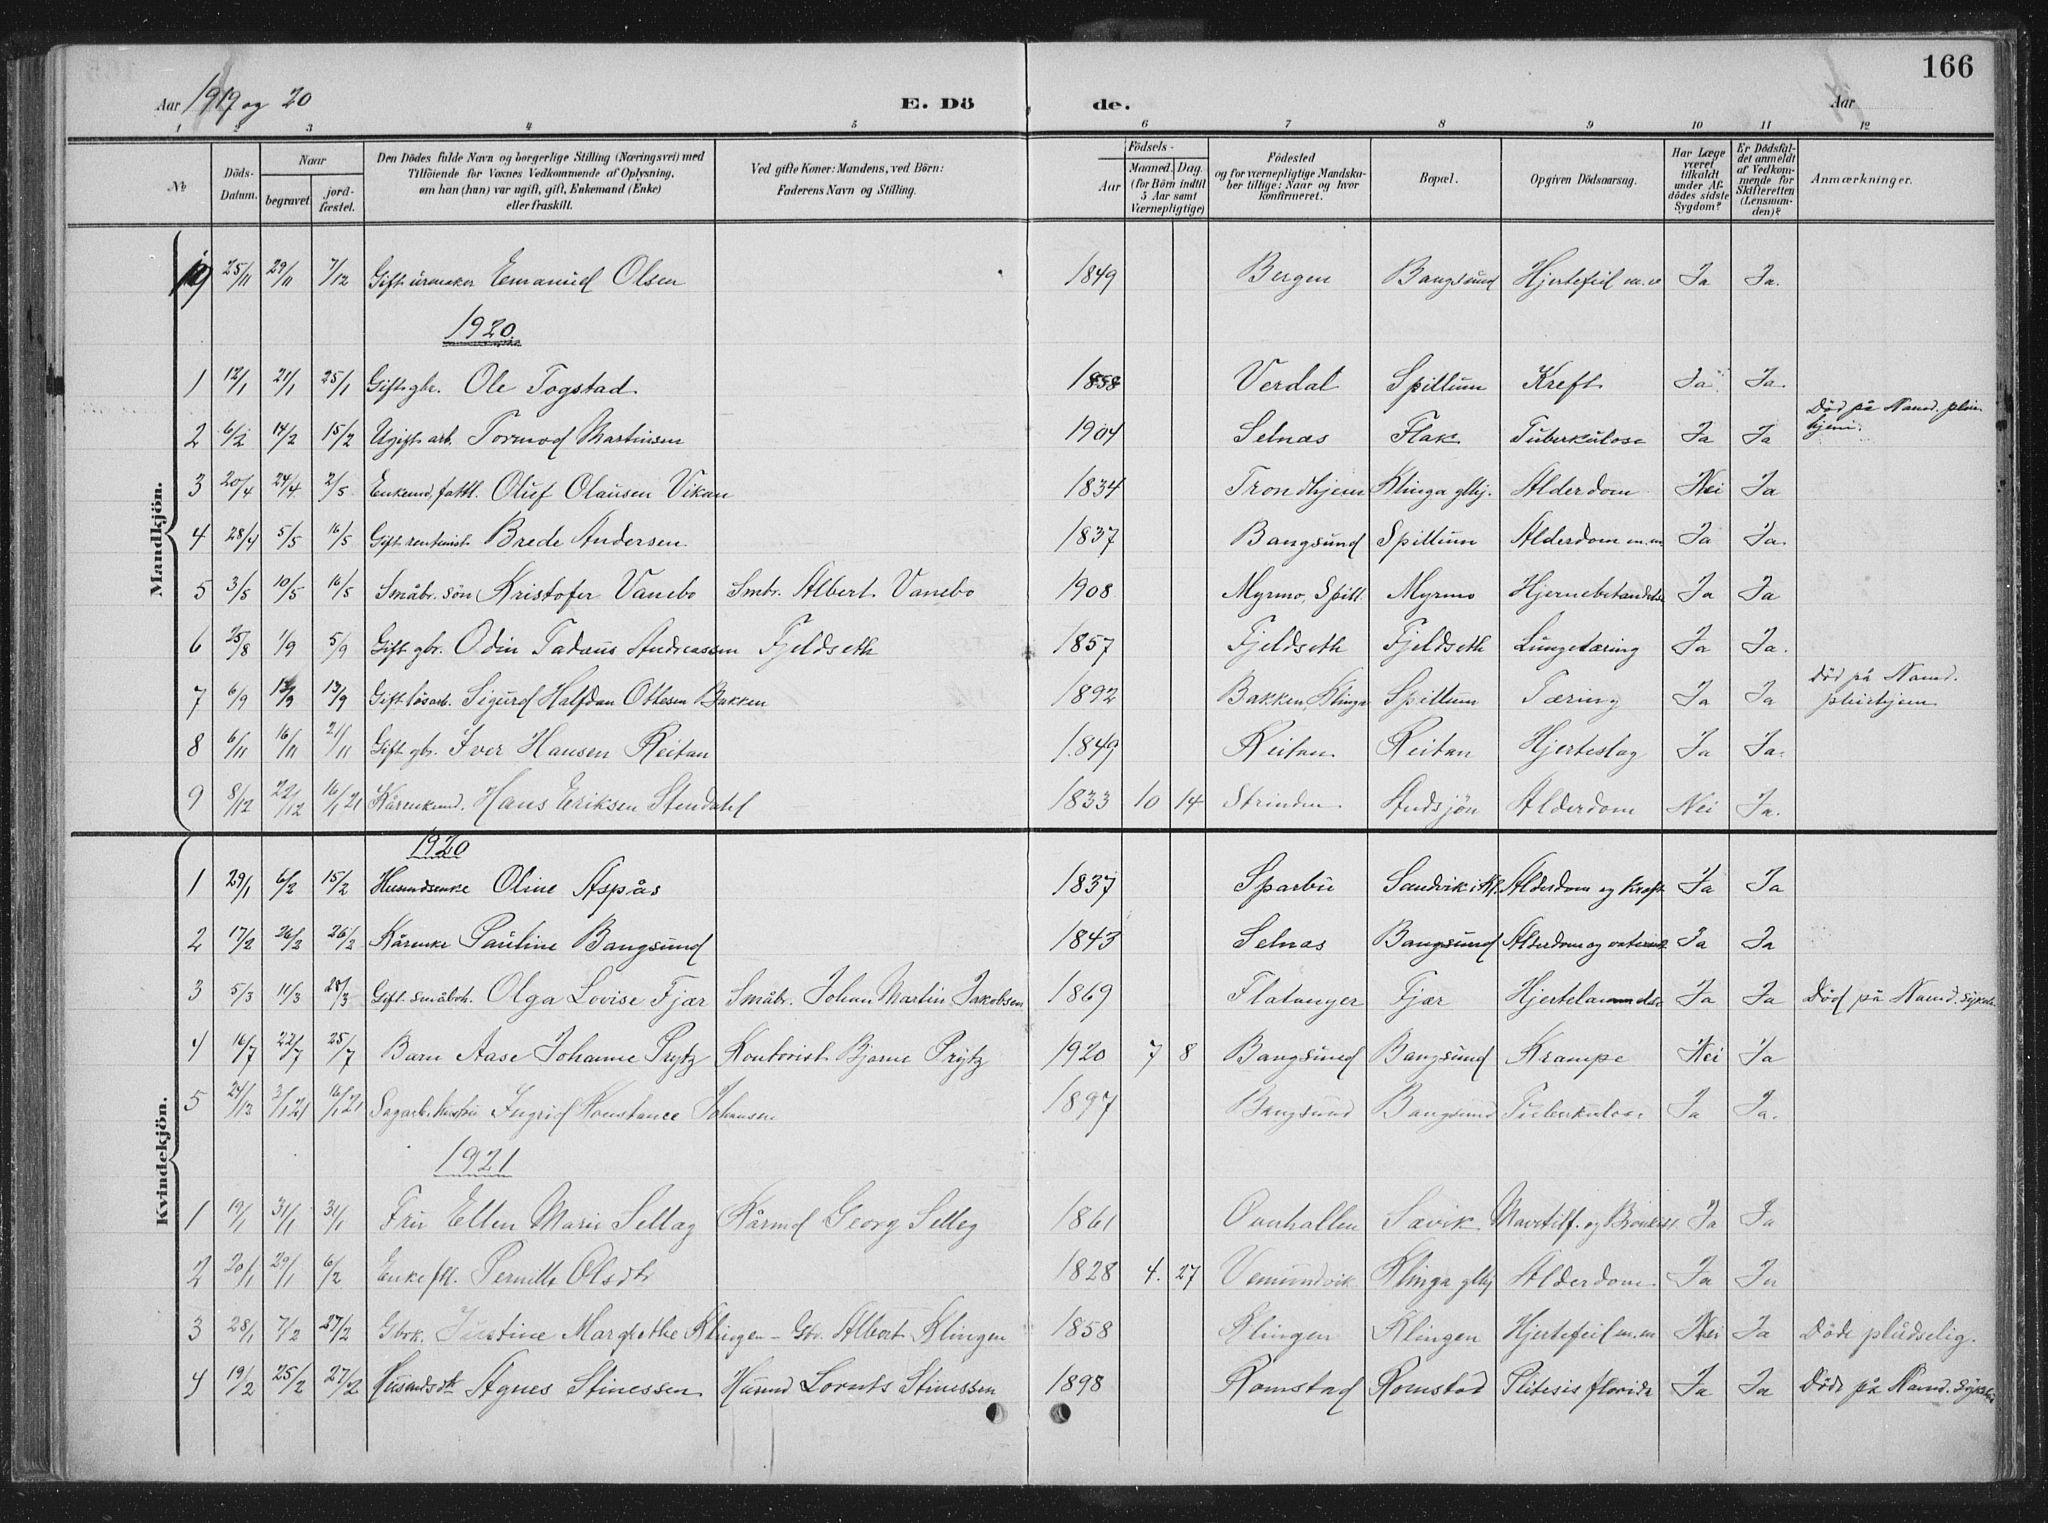 166
Aar 1919 og 20 E. Dö de. Aar
1 2 3 4 5 6 7 8 9 10 11 12
No
Döds-Datum.
Naar
begravet.
jord-fæstet.
Den Dödes fulde Navn og borgerlige Stilling (Næringsvei) med
Tilföiende for Voxnes Vedkommende af Oplysning,
om han (hun) var ugift, gift, Enkemand (Enke)
eller fraskilt.
Ved gifte Koner: Mandens, ved Börn:
Faderens Navn og Stilling.
Födsels-
Aar
Maaned. Dag.
(for Börn indtil
5 Aar samt
Værnepligtige)
Födested
og for værnepligtige Mandska-
ber tillige: Naar og hvor
konfirmeret.
Bopæl.
Opgiven Dödsaarsag.
Har Læge
været
tilkaldt
under Af-
dödes sidste
Sygdom?
Er Dödsfal-
det anmeldt
af Vedkom-
mende for
Skifteretten
(Lensman-
den)?
Anmærkninger.
Mandkjön.
25/11 29/11 7/12 Gift urmaker Emanuel Olsen 1849 Bergen Bangsund Hjertefeil m.v Ja Ja.
1920.
1 12/1 21/1 25/1 Gift gbr. Ole Togstad 1858 Verdal Spillum Kreft Ja Ja.
2 6/2 14/2 15/2 Ugift arb. Tormod Martinsen 1904 Selnæs Flak Tuberkulose Ja Ja Död på Namd. pleie-
hjem.
3 20/4 24/4 2/5 Enkemd, fattl. Oluf Olausen Vikan 1834 Trondhjem Klinga glhj. Alderdom Nei Ja
4 28/4 5/5 16/5 Gift rentenist Brede Andersen 1837 Bangsund Spillum Alderdom m.m Ja Ja.
5 3/5 10/5 16/5 Småbr. sön Kristofer Vanebo Smbr. Albert Vanebo 1908 Myrmo, Spill. Myrmo Hjernebetændelse Ja Ja
6 25/8 1/9 5/9 Gift gbr. Odin Tadæus Andreassen Fjeldseth 1857 Fjeldseth Fjeldseth Lungetæring Ja Ja.
7 6/9 13/9 13/9 Gift lösarb. Sigurd Halfdan Ottesen Bakken 1892 Bakken, Klinga Spillum Tæring Ja Ja Död på Namd.
pleiehjem
8 6/11 16/11 21/11 Gift gbr. Iver Hansen Reitan 1849 Reitan Reitan Hjerteslag Ja Ja.
9 8/12 22/12 16/1 21 Kårenkemd. Hans Eriksen Stendahl 1833 10 14 Strinden Audsjön Alderdom Nei Ja.
Kvindekjön.
1920
1 29/1 6/2 15/2 Husmdsenke Oline Aspås 1837 Sparbu Sandvik i Kl. Alderdom og Kreft Ja Ja
2 17/2 26/2 26/2 Kårenke Pauline Bangsund 1843 Selnæs Bangsund Alderdom og Ja Ja
3 5/3 11/3 28/3 Gift. småbrk. Olga Lovise Fjær Småbr. Johan Martin Jakobsen 1869 Flatanger Fjær Hjertelammelse Ja Ja Död på Namd. sykeh.
4 16/7 22/7 25/7 Barn Aase Johanne Prytz Kontorist Bjarne Prytz 1920 7 8 Bangsund Bangsund Krampe Nei Ja
5 24/12 3/1 21 16/1 21 Sagarb. hustru Ingrid Konstance Johansen 1897 Bangsund Bangsund Tuberkulose Ja Ja.
1921
1 19/1 31/1 31/1 Fru Ellen Marie Selleg Kårmd Georg Selleg 1861 Overhallen Sævik Mavetilf. og Ja Ja
2 20/1 29/1 6/2 Enke ftl. Pernille Olsdtr 1828 4. 27 Vemundvik Klinga glhj Alderdom Ja Ja
3 28/1 7/2 27/2 Gbrk. Justine Margrethe Klingen – Gbr. Albert Klingen 1858 Klingen Klingen Hjertefeil m.m Nei Ja Döde pludselig.
4 19/2 25/2 27/2 Husmdsdtr Agnes Stinessen Husmd Lornts Stinessen 1898 Romstad Romstad Ptitesis florida Ja Ja Döde på Namd. sykehus